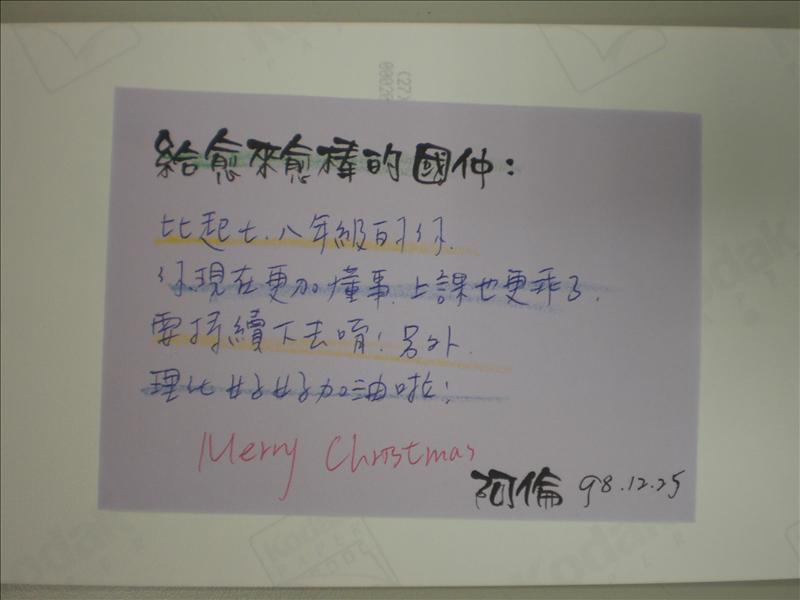 給愈來愈棒的國仲：
比起七.八年級的你.
你現在更加懂事.上課也更乖了.
要持續下去唷！另外.
理化好好加油啦！
Merry Christmas
阿倫 98.12.25
Kodak
PAPER